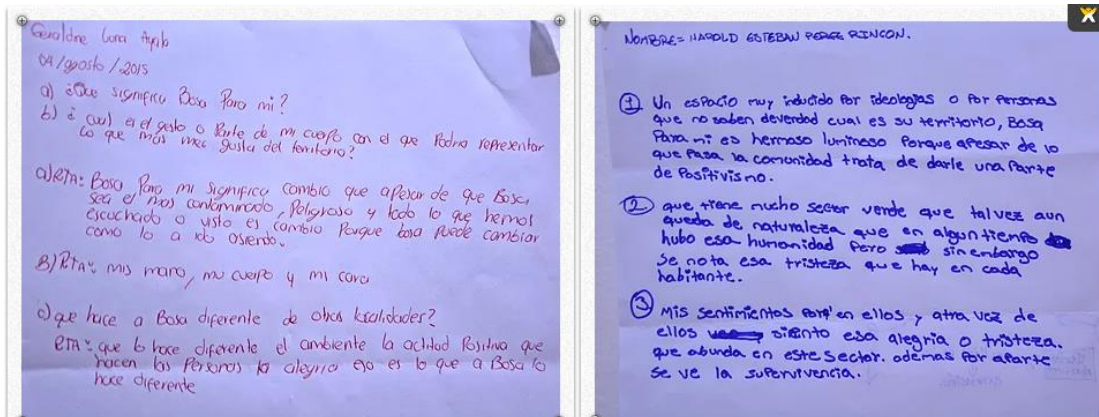 Geraldine Lora Ayala
04/agosto/2015
a) ¿Que significa Bosa Para mi?
b) ¿ cual es el gesto o Parte de mi cuerpo con el que Podria representar
lo que mas mee gusta del territorio?
a) RTA: Bosa Para mi significa cambio que apesar de que Bosa
sea el mas contaminado, Peligroso y todo lo que hemos
escuchado o visto es cambio Porque bosa puede cambiar
como lo a ido asiendo.
B) RTA: mis mano, mi cuerpo y mi cara
c) que hace a Bosa diferente de otras localidades?
RTA: que lo hace diferente el ambiente la actitud Positiva que
hacen las Personas la alegria eso es lo que a Bosa lo
hace diferente
NOMBRE= HAROLD ESTEBAN PEREZ RINCON.
① Un espacio muy inducido por ideologias o por personas
que no saben deverdad cual es su territorio, Bosa
Para mi es hermoso luminoso Porque apesar de lo
que pasa la comunidad trata de darle una Parte
de Positivismo.
② que tiene mucho sector verde que talvez aun
queda de naturaleza que en algun tiempo
hubo esa humanidad pero sin embargo
se nota esa tristeza que hay en cada
habitante.
③ Mis sentimientos en ellos y atra vez de
ellos siento esa alegria o tristeza.
que abunda en este sector. ademas por aparte
se ve la supervivencia.